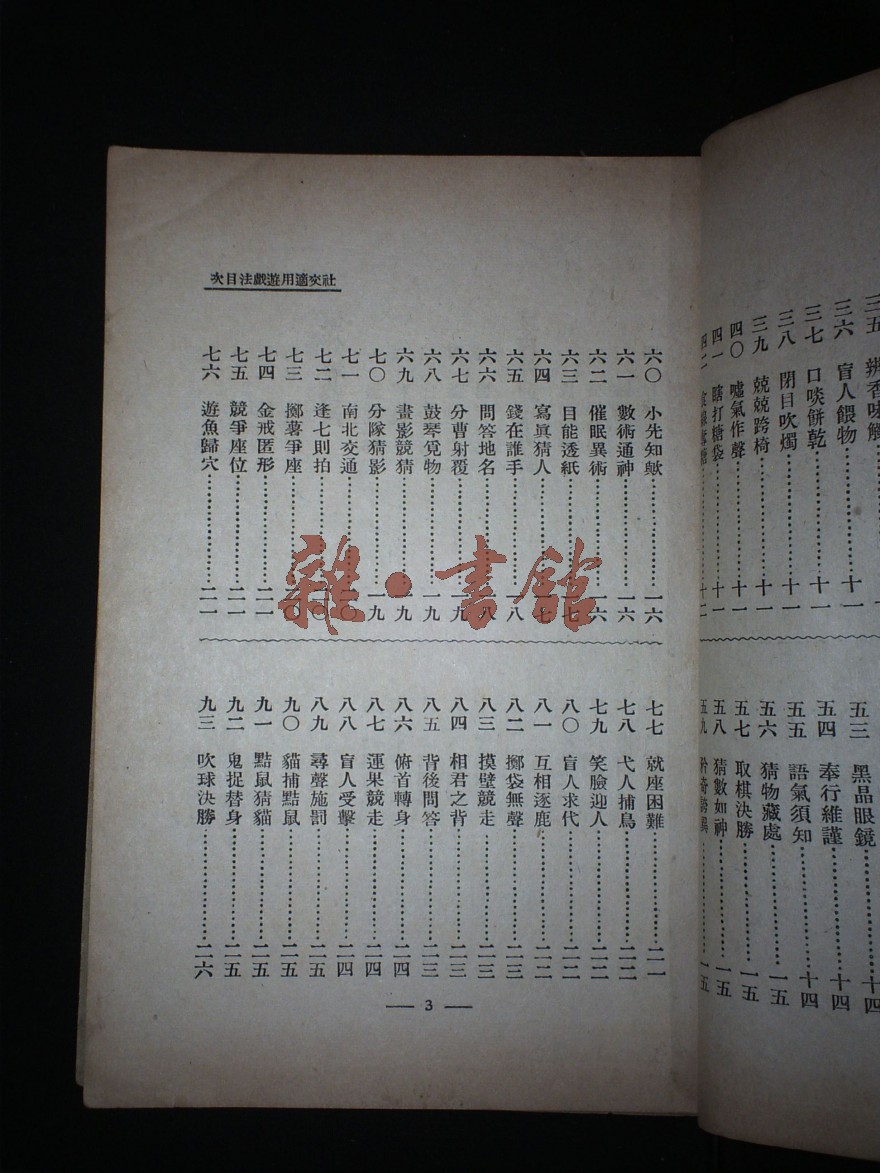 三五 辨香味觸
三六 盲人餵物……十一
三七 口啖餅乾……十一
三八 閉目吹燭……十一
三九 兢兢跨椅……十一
四〇 噓氣作聲……十一
四一 瞎打糖袋……十一
四二……十二
五三 黑晶眼鏡……十四
五四 奉行維謹……十四
五五 語氣須知……十四
五六 猜物藏處……一五
五七 取棋決勝……一五
五八 猜數如神……一五
五九……一五
社交適用遊戲法目次
六〇 小先知歟……一六
六一 數術通神……一六
六二 催眠異術……一六
六三 目能透紙……一七
六四 寫眞猜人……一七
六五 錢在誰手……一八
六六 問答地名……一八
六七 分曹射覆……一九
六八 鼓琴覓物……一九
六九 畫影競猜……一九
七〇 分隊猜影……一九
七一 南北交通……二〇
七二 逢七則拍……二〇
七三 擲薯爭座……二〇
七四 金戒匿形……二一
七五 競爭座位……二一
七六 遊魚歸穴……二一
七七 就座困難……二一
七八 弋人捕鳥……二二
七九 笑臉迎人……二二
八〇 盲人求代……二二
八一 互相逐鹿……二二
八二 擲袋無聲……二三
八三 摸壁競走……二三
八四 相君之背……二三
八五 背後問答……二三
八六 俯首轉身……二四
八七 運果競走……二四
八八 盲人受擊……二四
八九 尋聲施罰……二五
九〇 貓捕黠鼠……二五
九一 黠鼠猜貓……二五
九二 鬼捉替身……二五
九三 吹球決勝……二六
— 3 —
雜·書館